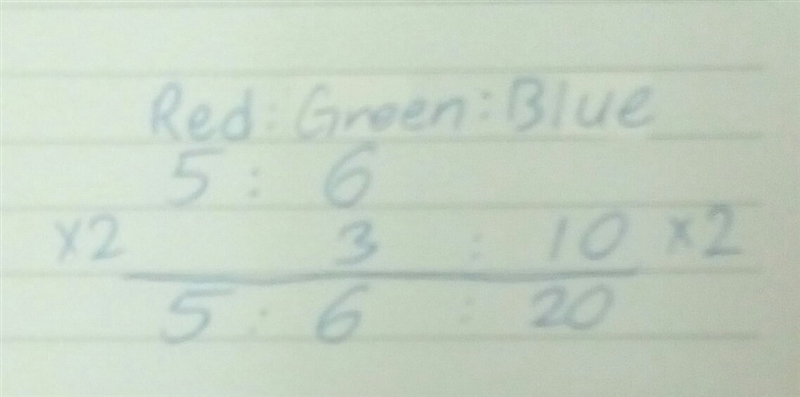 Red : Green : Blue
5 : 6
×2 3 : 10 ×2
5 : 6 : 20